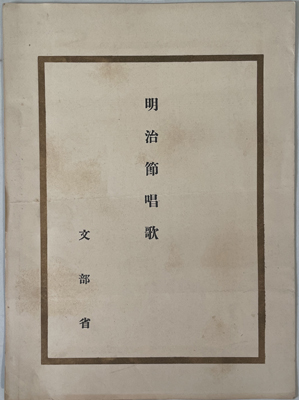 明治節唱歌
文部省